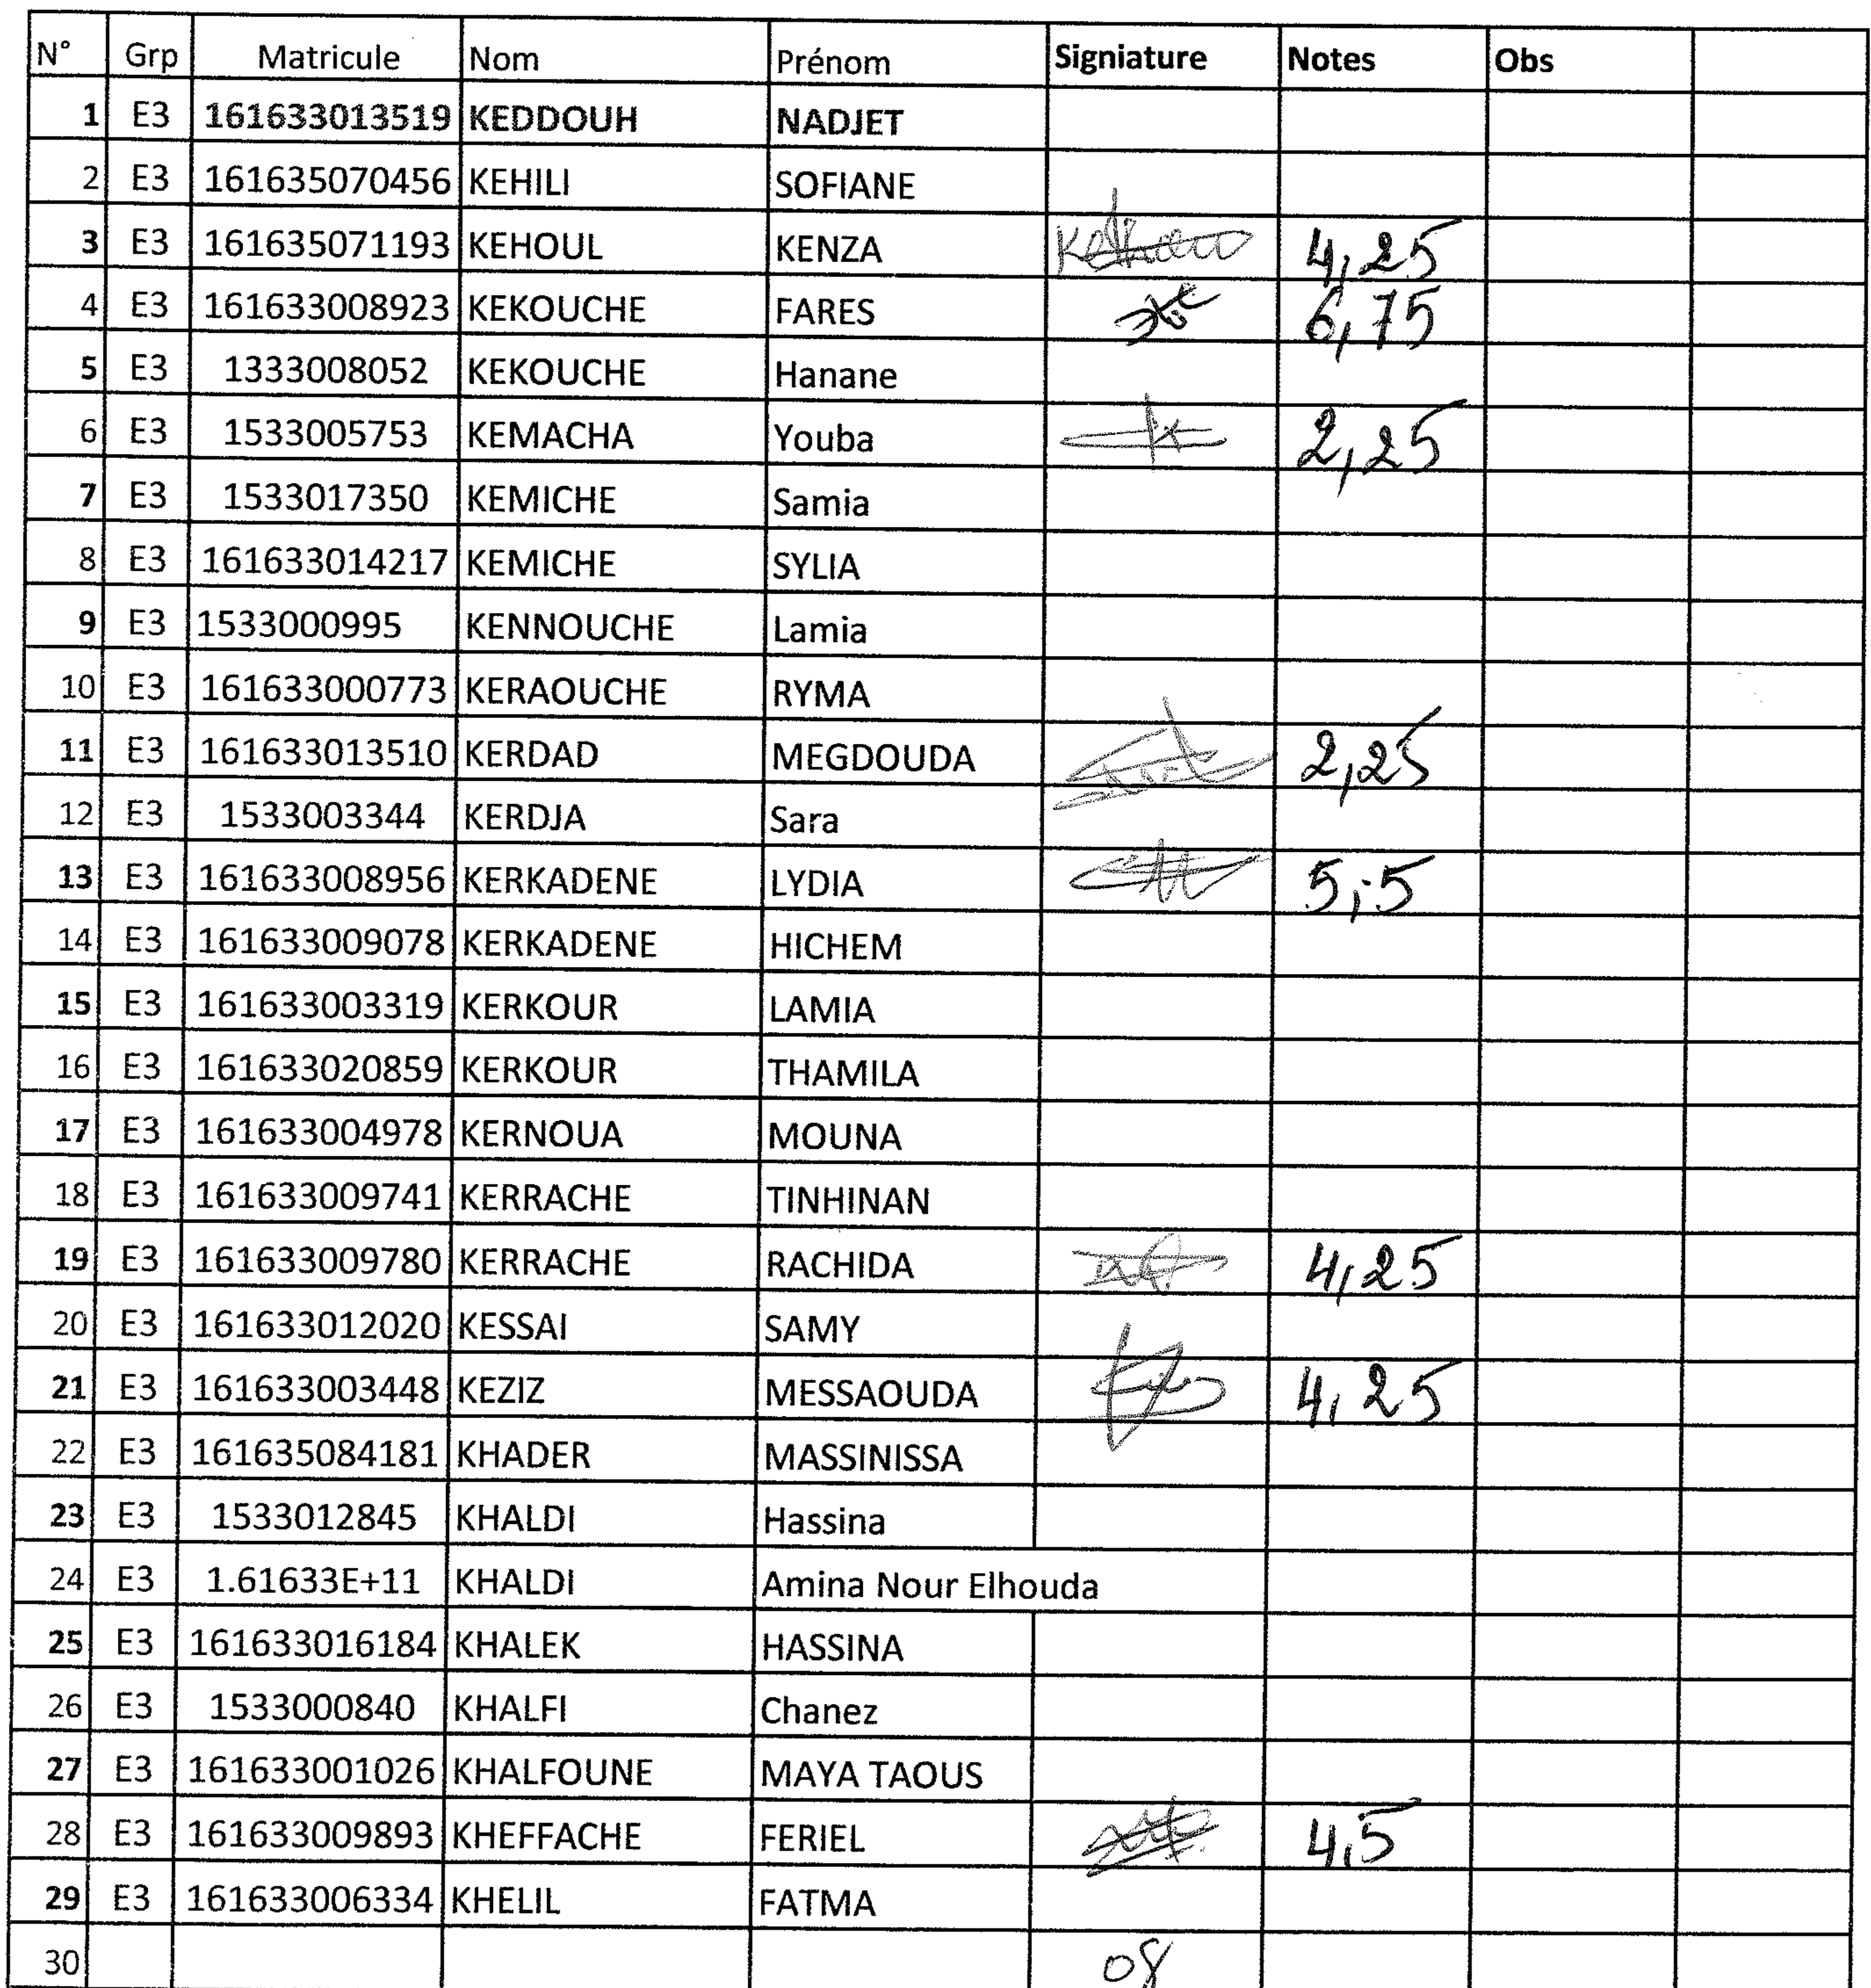 N° Grp Matricule Nom Prénom Signiature Notes Obs
1 E3 161633013519 KEDDOUH NADJET
2 E3 161635070456 KEHILI SOFIANE
3 E3 161635071193 KEHOUL KENZA 4,25
4 E3 161633008923 KEKOUCHE FARES 6,75
5 E3 1333008052 KEKOUCHE Hanane
6 E3 1533005753 KEMACHA Youba 2,25
7 E3 1533017350 KEMICHE Samia
8 E3 161633014217 KEMICHE SYLIA
9 E3 1533000995 KENNOUCHE Lamia
10 E3 161633000773 KERAOUCHE RYMA
11 E3 161633013510 KERDAD MEGDOUDA 2,25
12 E3 1533003344 KERDJA Sara
13 E3 161633008956 KERKADENE LYDIA 5,5
14 E3 161633009078 KERKADENE HICHEM
15 E3 161633003319 KERKOUR LAMIA
16 E3 161633020859 KERKOUR THAMILA
17 E3 161633004978 KERNOUA MOUNA
18 E3 161633009741 KERRACHE TINHINAN
19 E3 161633009780 KERRACHE RACHIDA 4,25
20 E3 161633012020 KESSAI SAMY
21 E3 161633003448 KEZIZ MESSAOUDA 4,25
22 E3 161635084181 KHADER MASSINISSA
23 E3 1533012845 KHALDI Hassina
24 E3 1.61633E+11 KHALDI Amina Nour Elhouda
25 E3 161633016184 KHALEK HASSINA
26 E3 1533000840 KHALFI Chanez
27 E3 161633001026 KHALFOUNE MAYA TAOUS
28 E3 161633009893 KHEFFACHE FERIEL 4,5
29 E3 161633006334 KHELIL FATMA
30 08